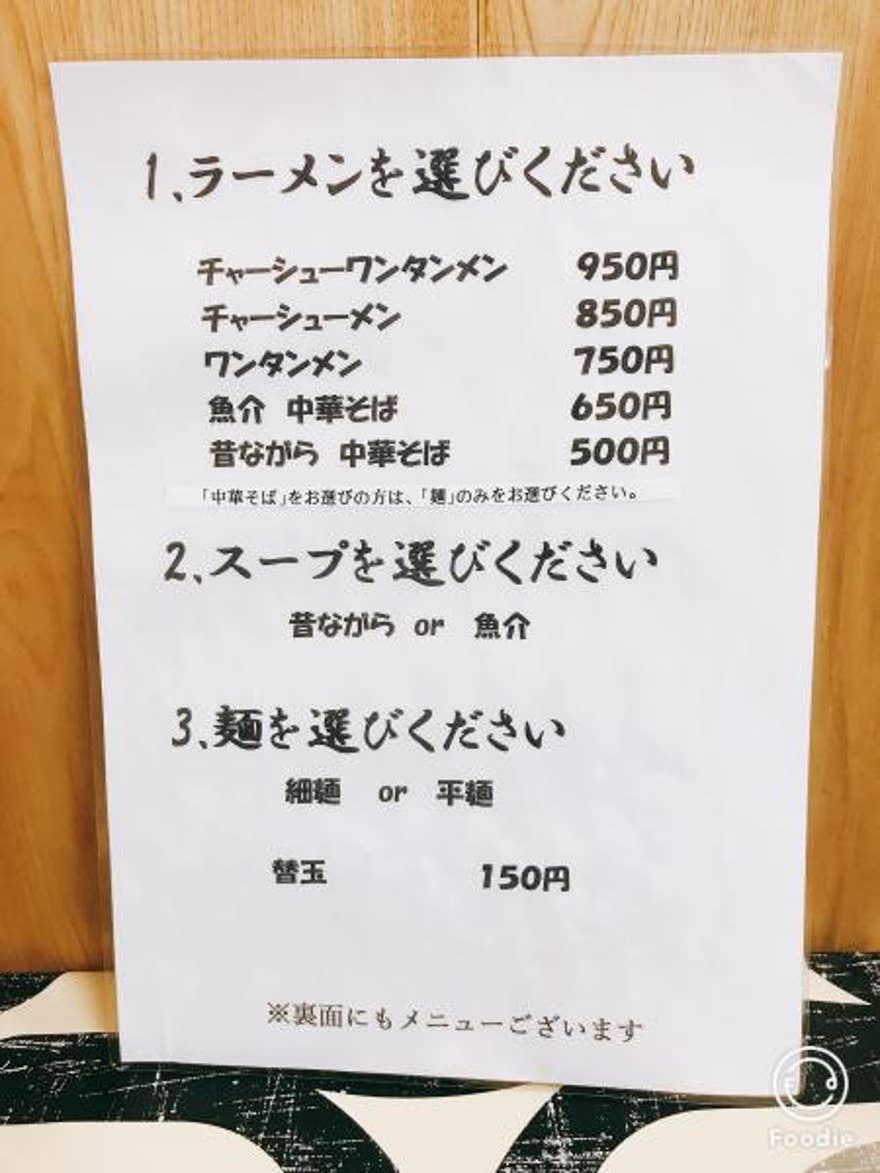 1、ラーメンを選びください
チャーシューワンタンメン 950円
チャーシューメン 850円
ワンタンメン 750円
魚介 中華そば 650円
昔ながら 中華そば 500円
「中華そば」をお選びの方は、「麺」のみをお選びください。
2、スープを選びください
昔ながら or 魚介
3、麺を選びください
細麺 or 平麺
替玉 150円
※裏面にもメニューございます
Foodie